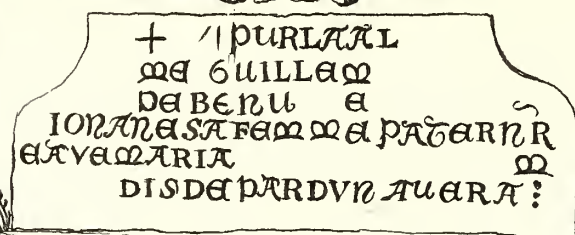 + PURLAAL
ME GUILLEM
DE BENU E
IONANESAFEMME PATERNR̃
EAVEMARIA M
DISDEPARDVN AUERA⋮